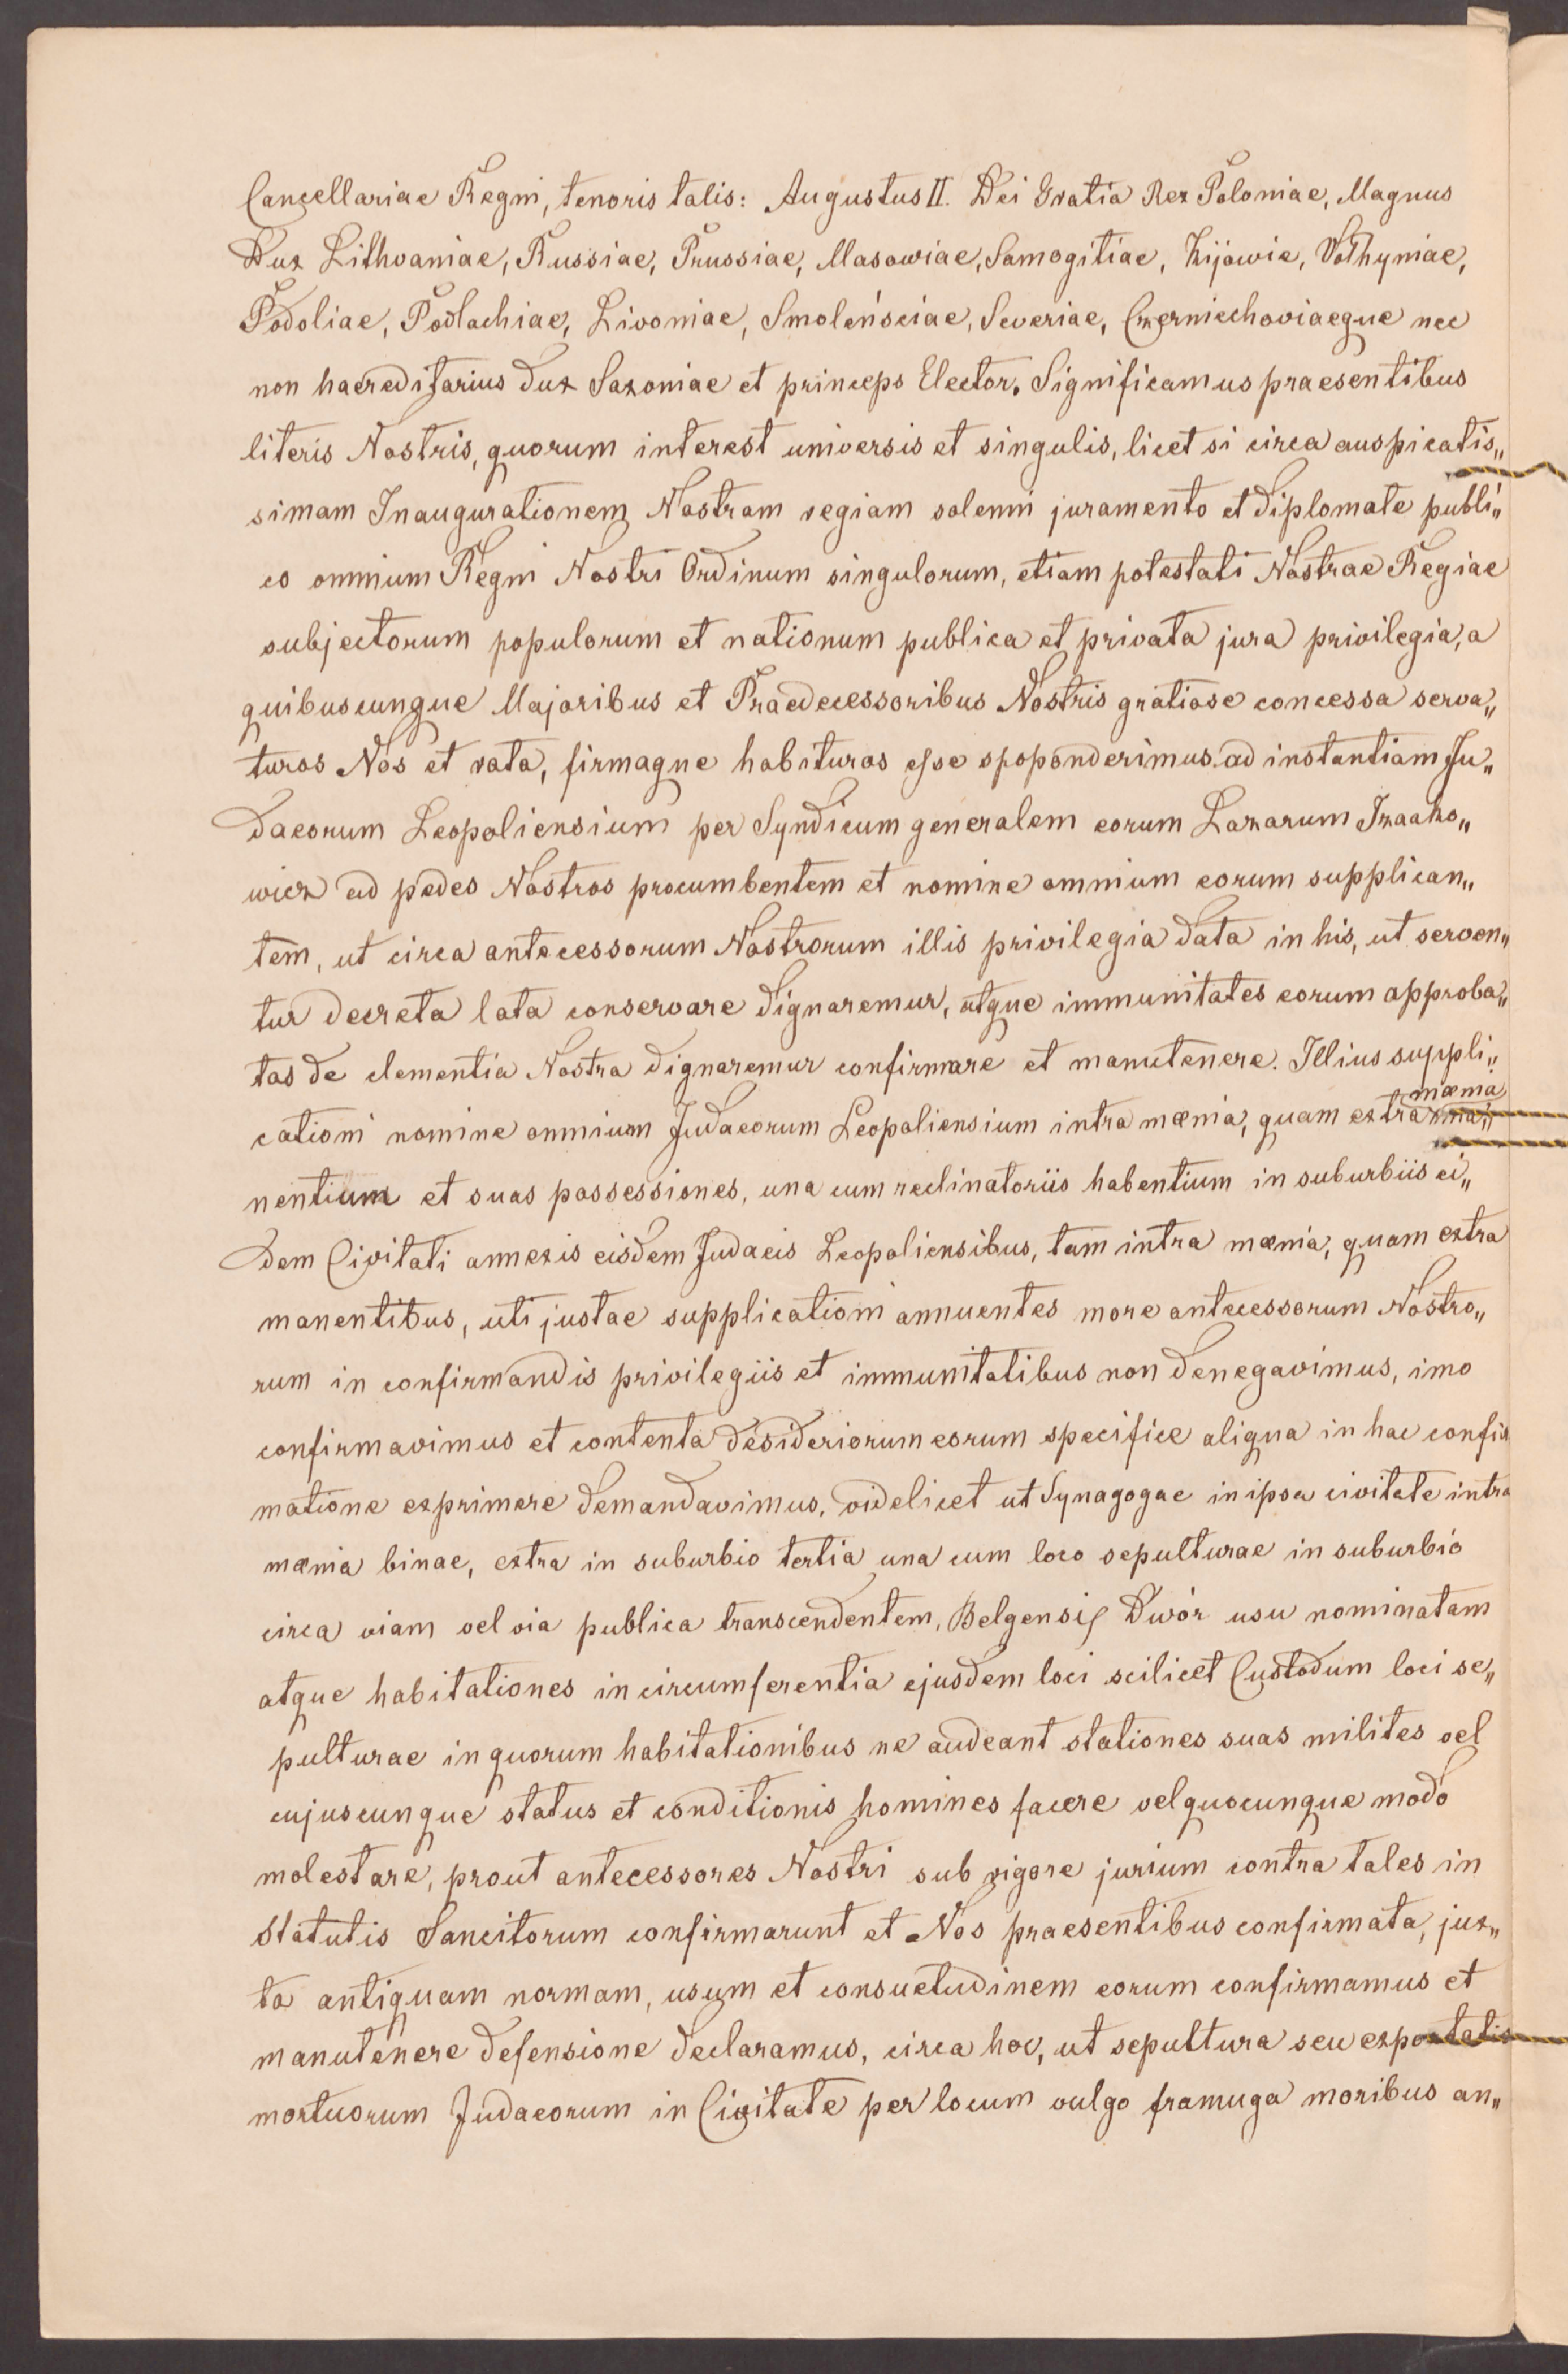 Cancellariae Regni, tenoris talis: Augustus II. Dei Gratia Rex Poloniae, Magnus
Dux Lithvaniae, Russiae, Prussiae, Masowiae, Samogitiae, Kijowie, Vołhyniae,
Podoliae, Podlachiae, Livoniae, Smoleńsciae, Severiae, Czerniechoviaeque nec
non haereditarius dux Saxoniae et princeps Elector. Significamus praesentibus
literis Nostris, quorum interest universis et singulis, licet si circa auspicatis„
simam Inaugurationem Nostram regiam solenni juramento et diplomate publi„
co omnium Regni Nostri Ordinum singulorum, etiam potestati Nostrae Regiae
subjectorum populorum et nationum publica et privata jura privilegia, a
quibuscunque Majoribus et Praedecessoribus Nostris gratiose concessa serva„
turos Nos et rata, firmaque habituros esse spoponderimus ad instantiam Ju„
daeorum Leopoliensium per Syndicum generalem eorum Lazarum Izaako„
wicz ad pedes Nostros procumbentem et nomine omnium eorum supplican„
tem, ut circa antecessorum Nostrorum illis privilegia data in his, ut serven„
tur decreta lata conservare dignaremur, utque immunitates eorum approba„
tas de clementia Nostra dignaremur confirmare et manutenere. Illius suppli„
cationi nomine omnium Judaeorum Leopoliensium intra mænia, quam extra mænia ma„
nentium et suas possessiones, una cum reclinatoriis habentium in suburbiis ei„
dem Civitati annexis eisdem Judaeis Leopoliensibus, tam intra mænia, quam extra
manentibus, uti justae supplicationi annuentes more antecessorum Nostro„
rum in confirmandis privilegiis et immunitatibus non denegavimus, imo
confirmavimus et contenta desideriorum eorum specifice aliqua in hac confir
matione exprimere demandavimus, videlicet ut Synagogae in ipsa civitate intra
mænia binae, extra in suburbio tertia una cum loco sepulturae in suburbio
circa viam vel via publica transcendentem, Belgensis Dwór usu nominatam
atque habitationes in circumferentia ejusdem loci scilicet Custodum loci se„
pulturae in quorum habitationibus ne audeant stationes suas milites vel
cujuscunque status et conditionis homines facere vel quocunque modo
molestare, prout antecessores Nostri sub rigore jurium contra tales in
Statutis Sancitorum confirmarunt et Nos praesentibus confirmata, jux„
ta antiquam normam, usum et consuetudinem eorum confirmamus et
manutenere defensione declaramus, circa hoc, ut sepultura seu exportatio
mortuorum Judaeorum in Civitate per locum vulgo framuga moribus an„